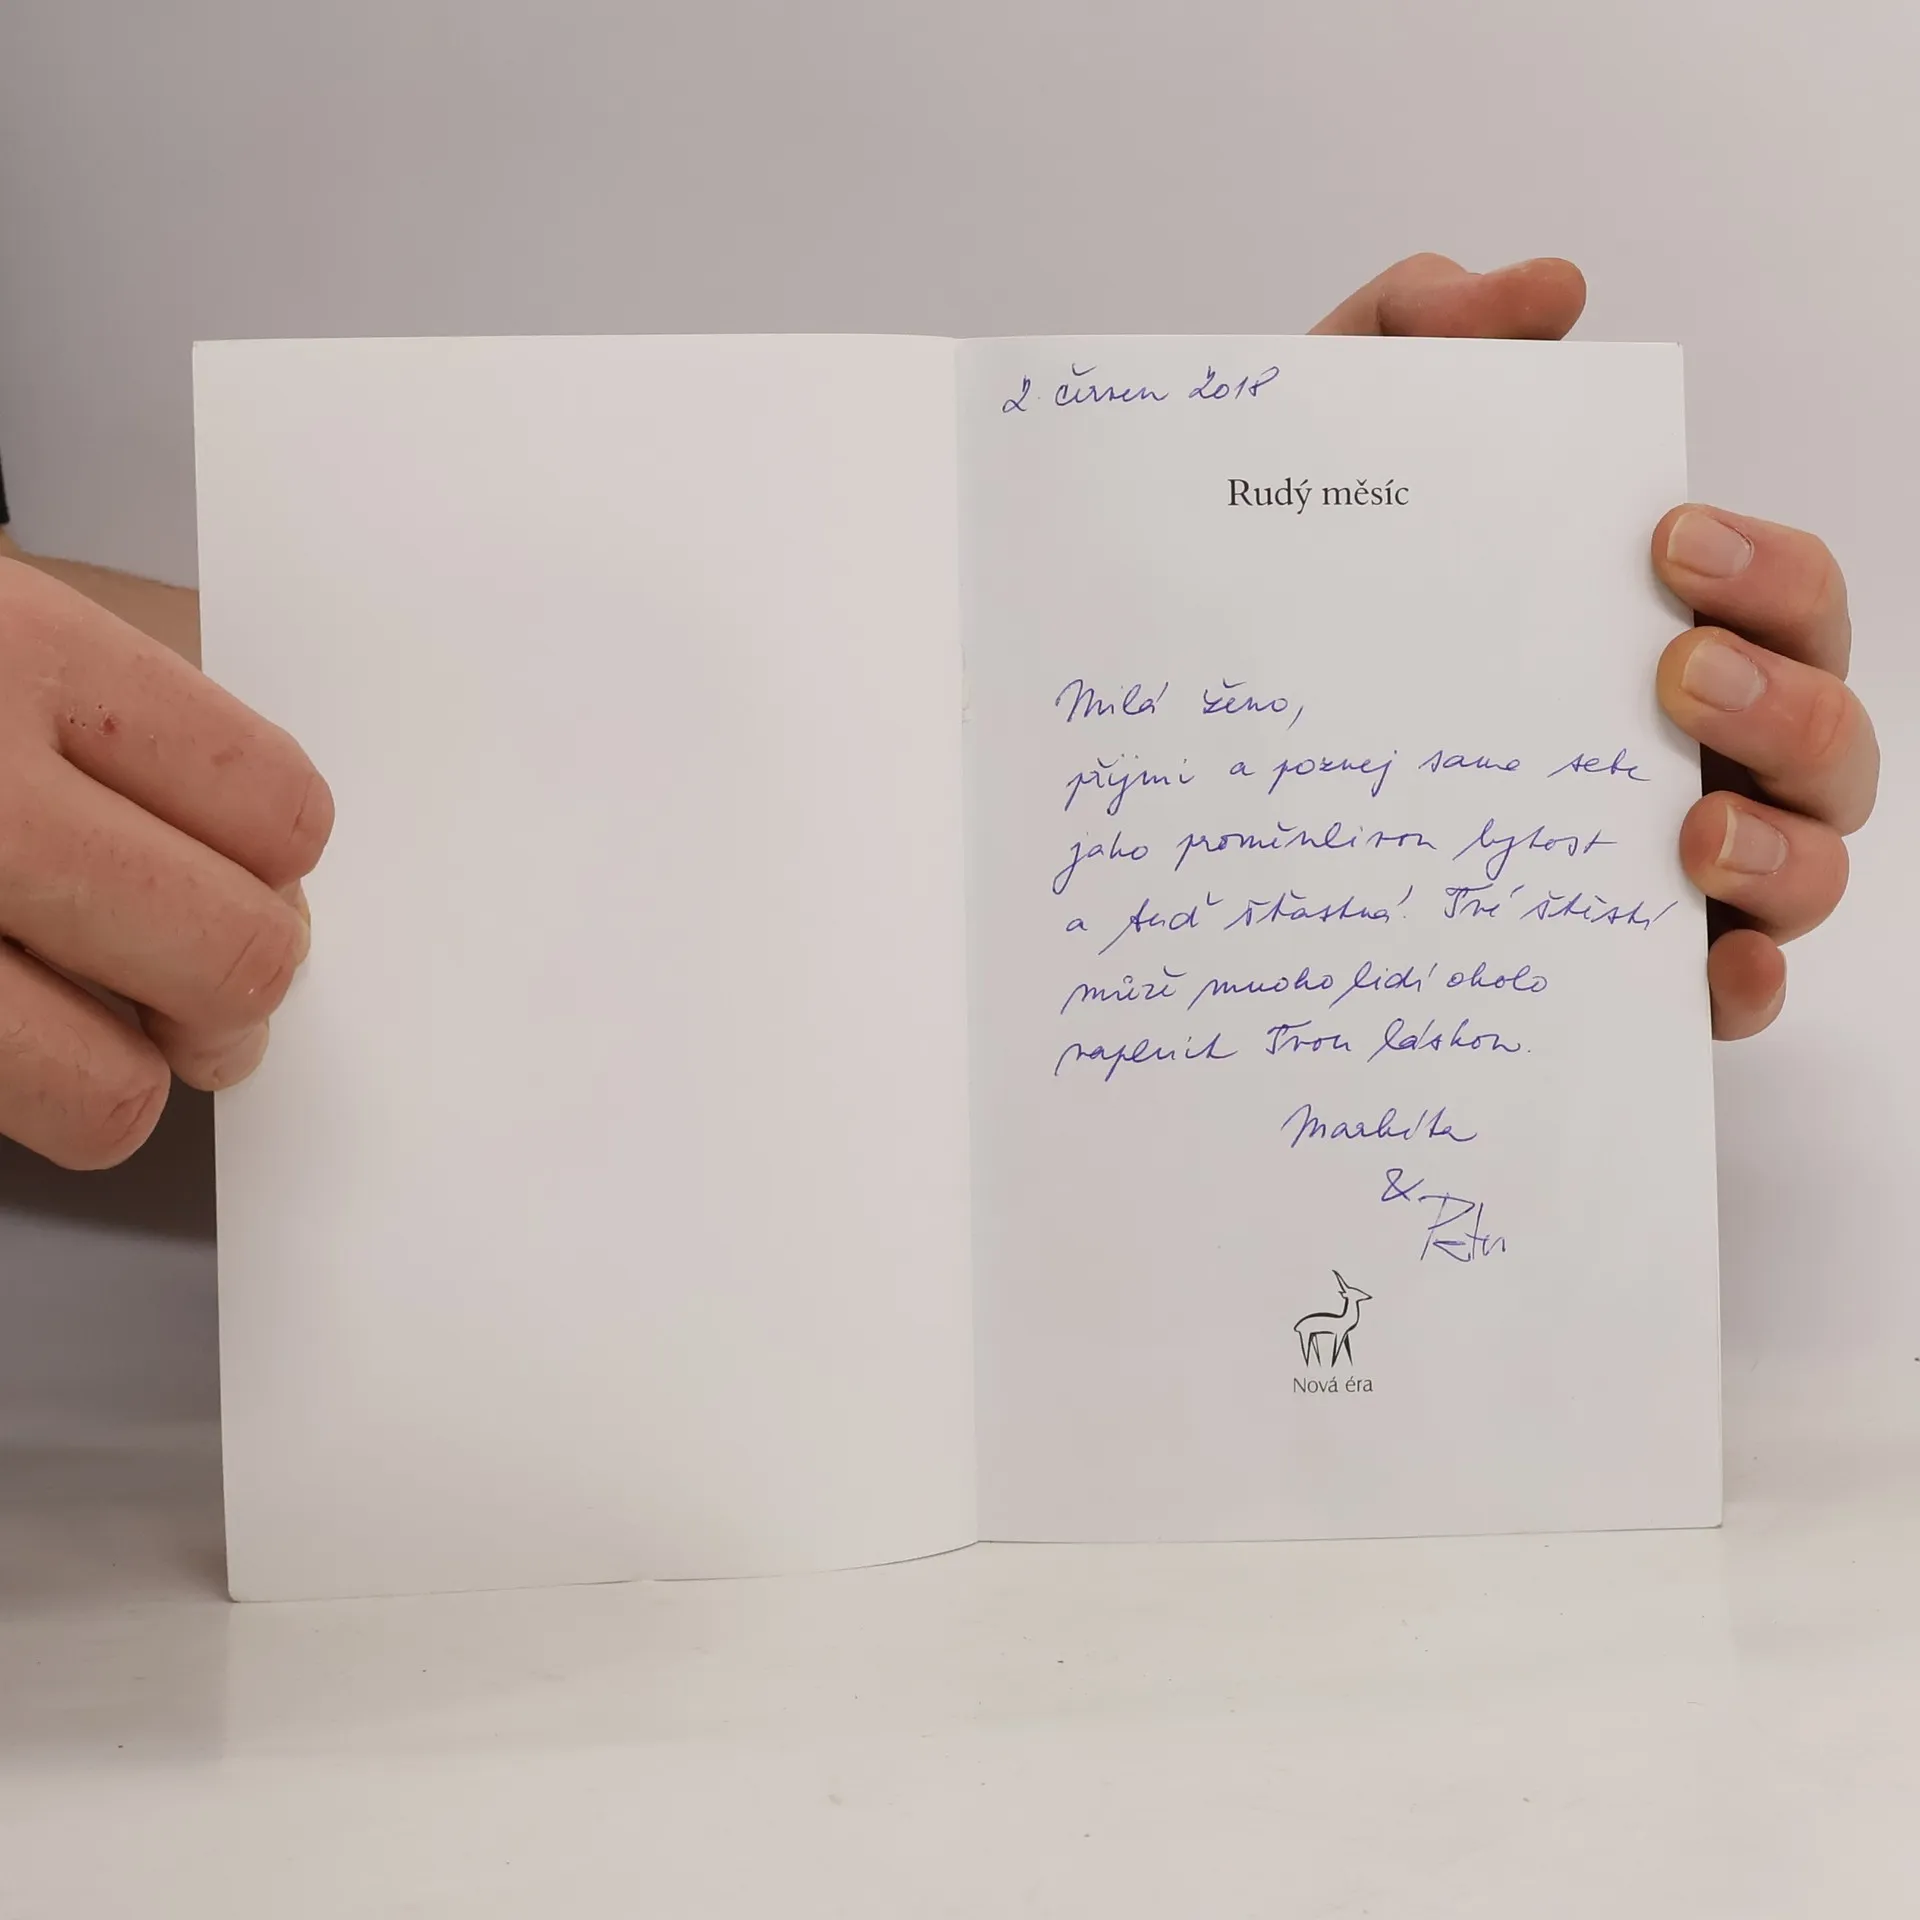 2. červen 2018
Rudý měsíc
Milá ženo,
přijmi a poznej sama sebe
jako proměnlivou bytost
a buď šťastná. Tvé štěstí
může mnoho lidí okolo
naplnit Tvou láskou.
Markéta
&
Petr
Nová éra